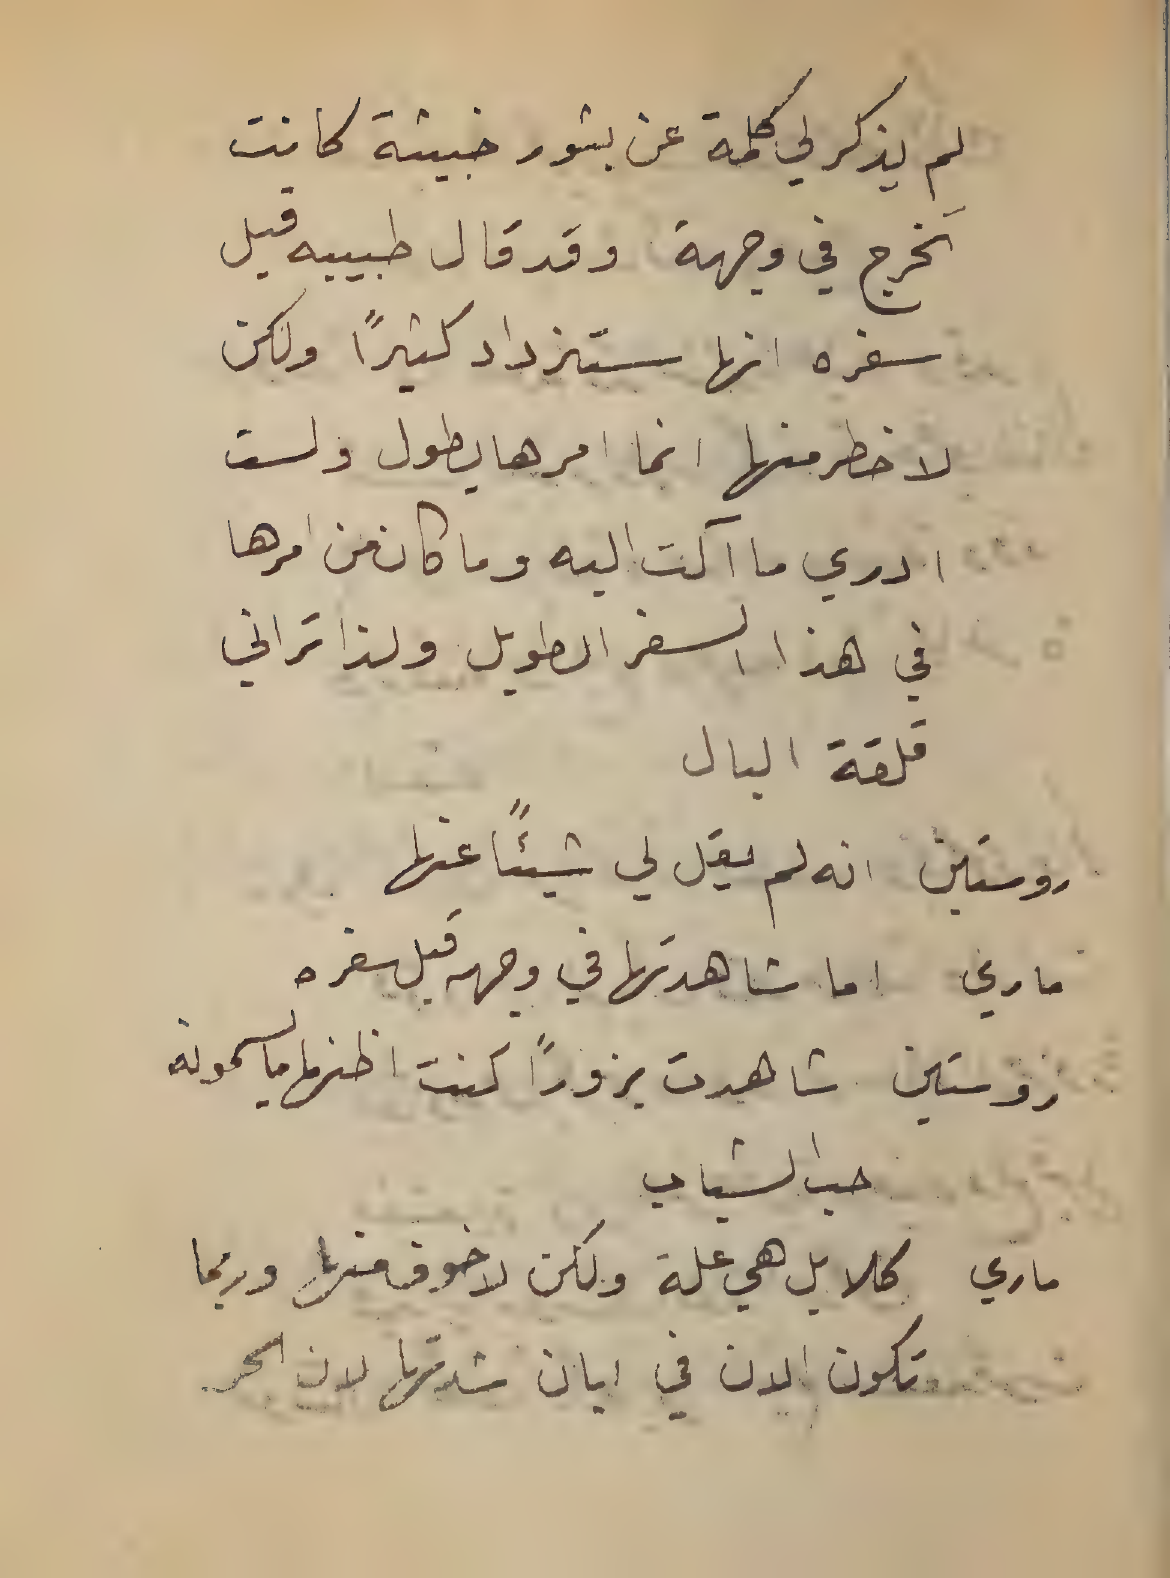 لم يذكر لي كلمة عن بثور خبيثة كانت
تخرج في وجهة وقد قال طبيبه قبل
سفره انها ستزداد كثيرًا ولكن
لا خطر منها انما امرها يطول ولست
ادري ما آلت اليه وما كان من امرها
في هذا السفر الطويل ولذا تراني
قلقة البال
روستين انه لم يقل لي شيئًا عنها
ماري اما شاهدتها في وجهه قبل سفره
روستين شاهدت بزورًا كنت اظنها ما يسمونه
حب الشباب
ماري كلا بل هي علة ولكن لا خوف منها وربما
تكون الان في ابان شدتها لان الحر